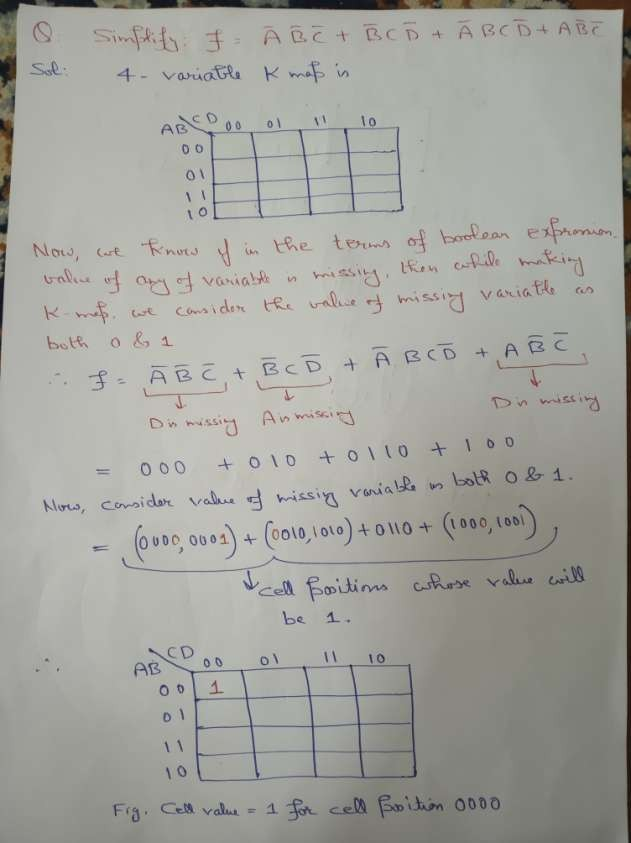 Q. Simplify: f = A̅ B̅ C̅ + B̅ C D̅ + A̅ B C D̅ + A B̅ C̅
Sol: 4 - variable K map is
CD
AB 00 01 11 10
00
01
11
10
Now, we know if in the terms of boolean expression
value of any of variable is missing, then while making
K-map, we consider the value of missing variable as
both 0 & 1
∴ f = A̅ B̅ C̅ + B̅ C D̅ + A̅ B C D̅ + A B̅ C̅
D is missing A is missing D is missing
= 000 + 010 + 0110 + 100
Now, consider value of missing variable as both 0 & 1.
= (0000, 0001) + (0010, 1010) + 0110 + (1000, 1001)
cell positions whose value will
be 1.
∴
CD
AB 00 01 11 10
00 1
01
11
10
Fig. Cell value = 1 for cell position 0000